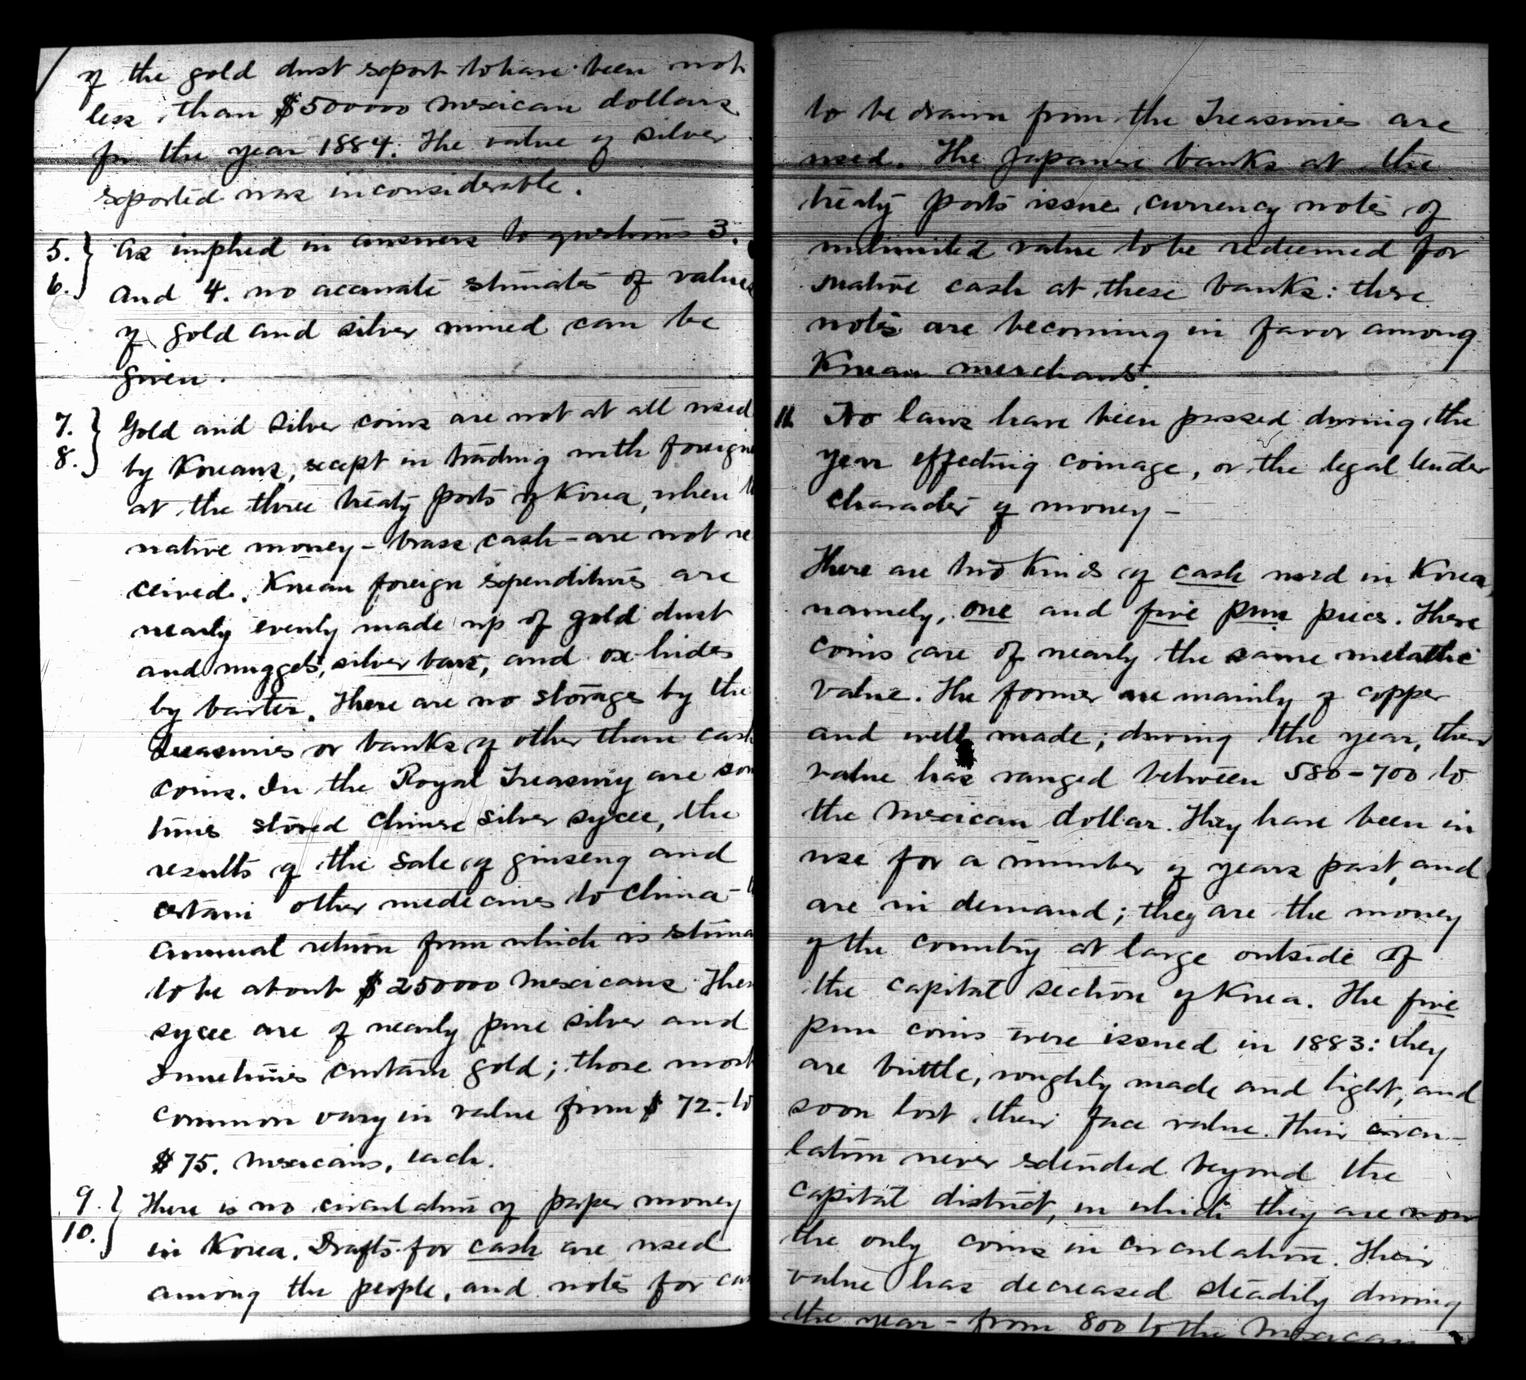 of the gold dust export to have been not
less than $500000 Mexican dollars
for the year 1884. The value of silver
exported was inconsiderable.
5. As implied in answers to questions 3.
6. and 4. no accurate estimates of values
of gold and silver mined can be
given.
7. Gold and silver coins are not at all used
8. by Koreans, except in trading with foreign
at the three treaty ports of Korea, when
native money - brass cash - are not re
ceived. Korean foreign expenditures are
nearly evenly made up of gold dust
and nuggets, silver bars, and ox-hides
by barter. There are no storages by the
treasuries or banks of other than cash
coins. In the Royal Treasury are som
times stored Chinese silver sycee, the
results of the sale of ginseng and
certain other medecines to China -
annual return from which is estima
to be about $250000 Mexicans. Thes
sycee are of nearly pure silver and
sometimes contain gold; those most
common vary in value from $72. to
$75. Mexicans, each.
9. There is no circulation of paper money
10. in Korea. Drafts for cash are used
among the people, and notes for ca
to be drawn from the Treasuries are
used. The Japanese banks at the
treaty ports issue currency notes of
unlimited value to be redeemed for
native cash at these banks: these
notes are becoming in favor among
Korean merchants.
11. No laws have been passed during the
year effecting coinage, or the legal tender
character of money -
There are two kinds of cash used in Korea,
namely, one and five pun pieces. These
coins are of nearly the same metallic
value. The former are mainly of copper
and well made; during the year, their
value has ranged between 580-700 to
the Mexican dollar. They have been in
use for a number of years past, and
are in demand; they are the money
of the country at large outside of
the capital section of Korea. The five
pun coins were issued in 1883: they
are brittle, roughly made and light, and
soon lost their face value. Their circu-
lation never extended beyond the
capital district, in which they are now
the only coins in circulation. Their
value has decreased steadily during
the year - from 800 to the Mexican